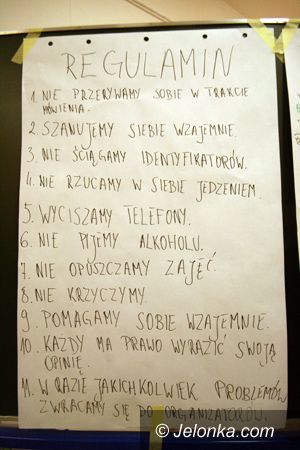 REGULAMIN
1. NIE PRZERYWAMY SOBIE W TRAKCIE
MÓWIENIA.
2. SZANUJEMY SIEBIE WZAJEMNIE.
3. NIE ŚCIĄGAMY IDENTYFIKATORÓW.
4. NIE RZUCAMY W SIEBIE JEDZENIEM.
5. WYCISZAMY TELEFONY.
6. NIE PIJEMY ALKOHOLU.
7. NIE OPUSZCZAMY ZAJĘĆ.
8. NIE KRZYCZYMY
9. POMAGAMY SOBIE WZAJEMNIE.
10. KAŻDY MA PRAWO WYRAZIĆ SWOJĄ
OPINIĘ.
11. W RAZIE JAKICHKOLWIEK PROBLEMÓW
ZWRACAMY SIĘ DO ORGANIZATORÓW.
© Jelonka.com